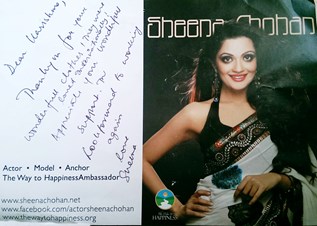 Dear
Thankyou for your
wonderful clothes! They were
Appreciate your wonderful
support. I'm
Look forward to working
again
Love
Sheena
Actor • Model • Anchor
The Way to HappinessAmbassador
www.sheenachohan.net
www.facebook.com/actorsheenachohan
www.thewaytohappiness.org
Sheena Chohan
HAPPINESS